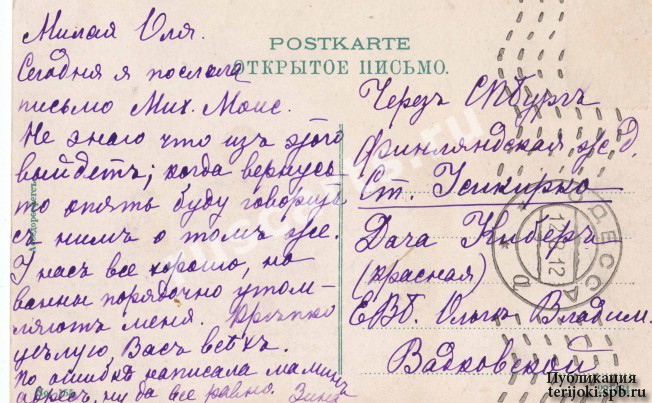 Милая Оля.
Сегодня я послала
письмо Мих. Моис.
Не знаю что изъ этого
выйдетъ; когда вернусь
то опять буду говорить
съ нимъ о томъ же.
У насъ все хорошо, но
ванны порядочно утом-
ляютъ меня. Крѣпко
цѣлую Васъ всѣхъ.
По ошибкѣ написала мамин
адресъ, ну да все равно. Зина
POSTKARTE
ОТКРЫТОЕ ПИСЬМО.
Черезъ СПбургъ
Финляндская ж. д.
Ст. Усикирко
Дача Киберъ
(красная)
ЕВБ. Ольгѣ Владим.
Вадковской
ОДЕССА
Публикация
terijoki.spb.ru